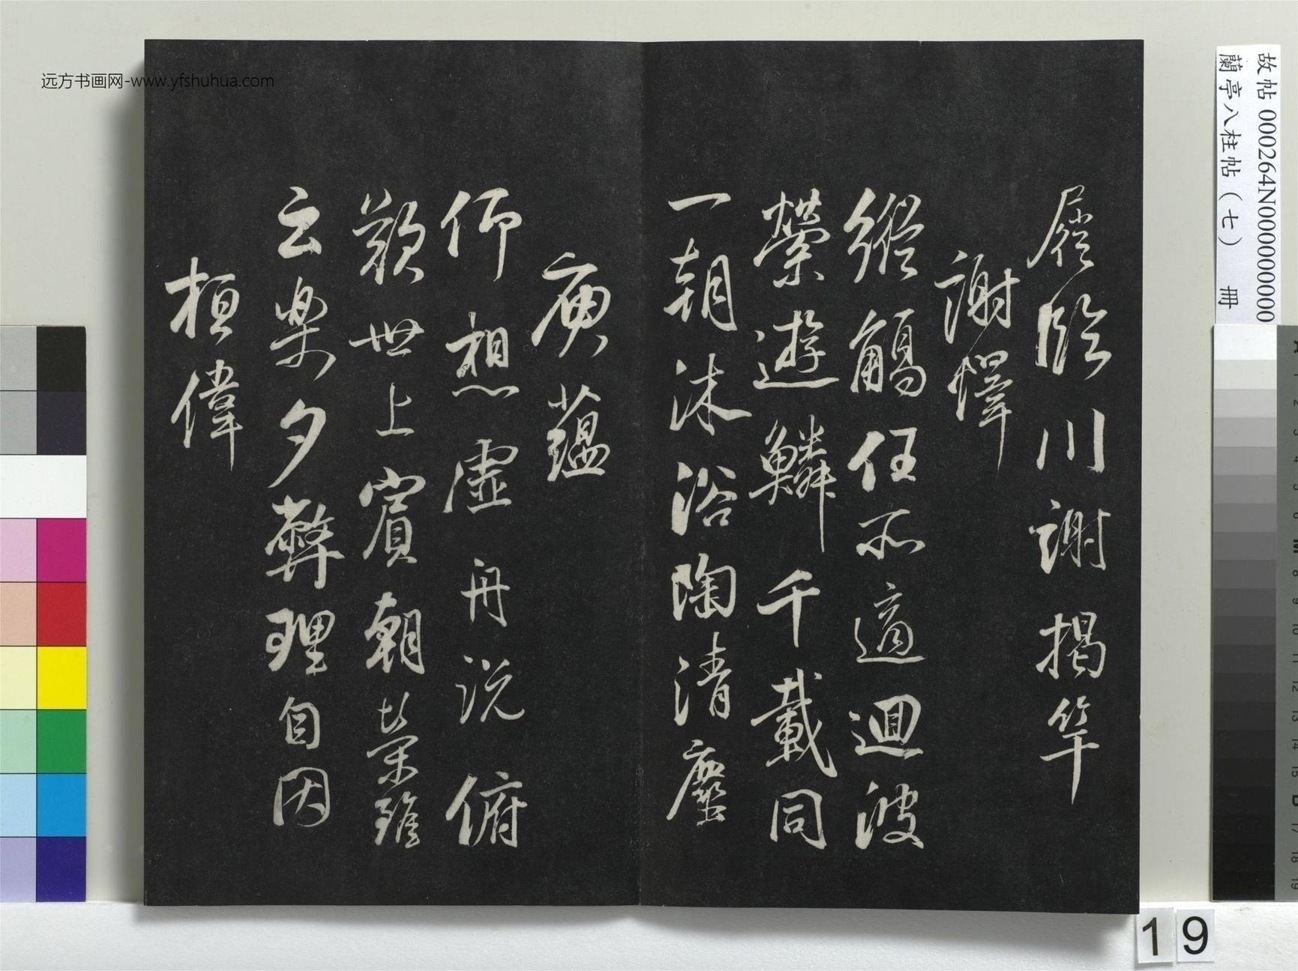 履臨川謝揭竿
謝繹
縱觴任所適迴波
縈遊鱗千載同
一朝沐浴陶清塵
庾蘊
仰想虛舟說俯
歎世上賓朝榮雖
云樂夕弊理自因
桓偉
远方书画网-www.yfshuhua.com
故帖 000264N000000000
蘭亭八柱帖（七） 冊
19